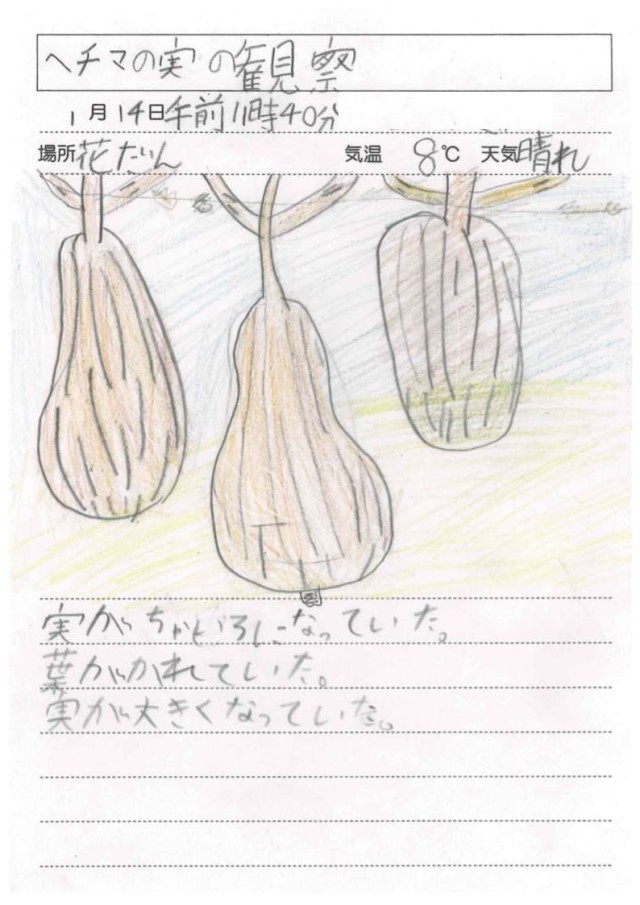 ヘチマの実の観察
1月14日午前11時40分
場所 花だん 気温 8℃ 天気 晴れ
実がちゃいろになっていた。
葉がかれていた。
実が大きくなっていた。